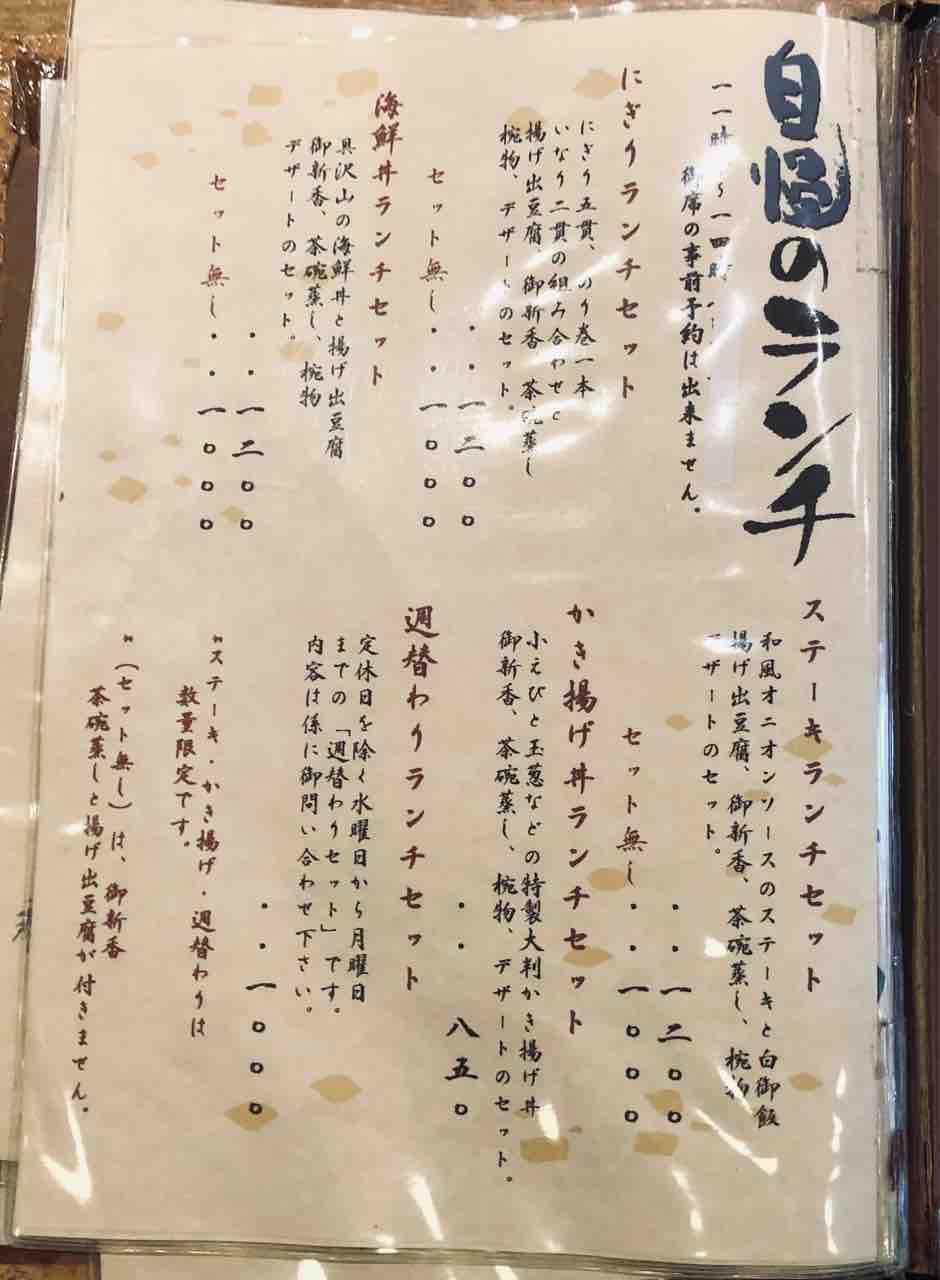 自慢のランチ
一一時～一四時
御席の事前予約は出来ません。
にぎりランチセット
にぎり五貫、のり巻一本
いなり二貫の組み合わせと
揚げ出豆腐、御新香、茶碗蒸し
椀物、デザートのセット。
・・一二〇〇
セット無し・・一〇〇〇
海鮮丼ランチセット
具沢山の海鮮丼と揚げ出豆腐
御新香、茶碗蒸し、椀物
デザートのセット。
・・一二〇〇
セット無し・・一〇〇〇
ステーキランチセット
和風オニオンソースのステーキと白御飯
揚げ出豆腐、御新香、茶碗蒸し、椀物
デザートのセット。
・・一二〇〇
セット無し・・一〇〇〇
かき揚げ丼ランチセット
小えびと玉葱などの特製大判かき揚げ丼
御新香、茶碗蒸し、椀物、デザートのセット。
・・八五〇
週替わりランチセット
定休日を除く水曜日から月曜日
までの「週替わりセット」です。
内容は係に御問い合わせ下さい。
・・一〇〇〇
〃ステーキ・かき揚げ・週替わりは
数量限定です。
〃（セット無し）は、御新香
茶碗蒸しと揚げ出豆腐が付きません。